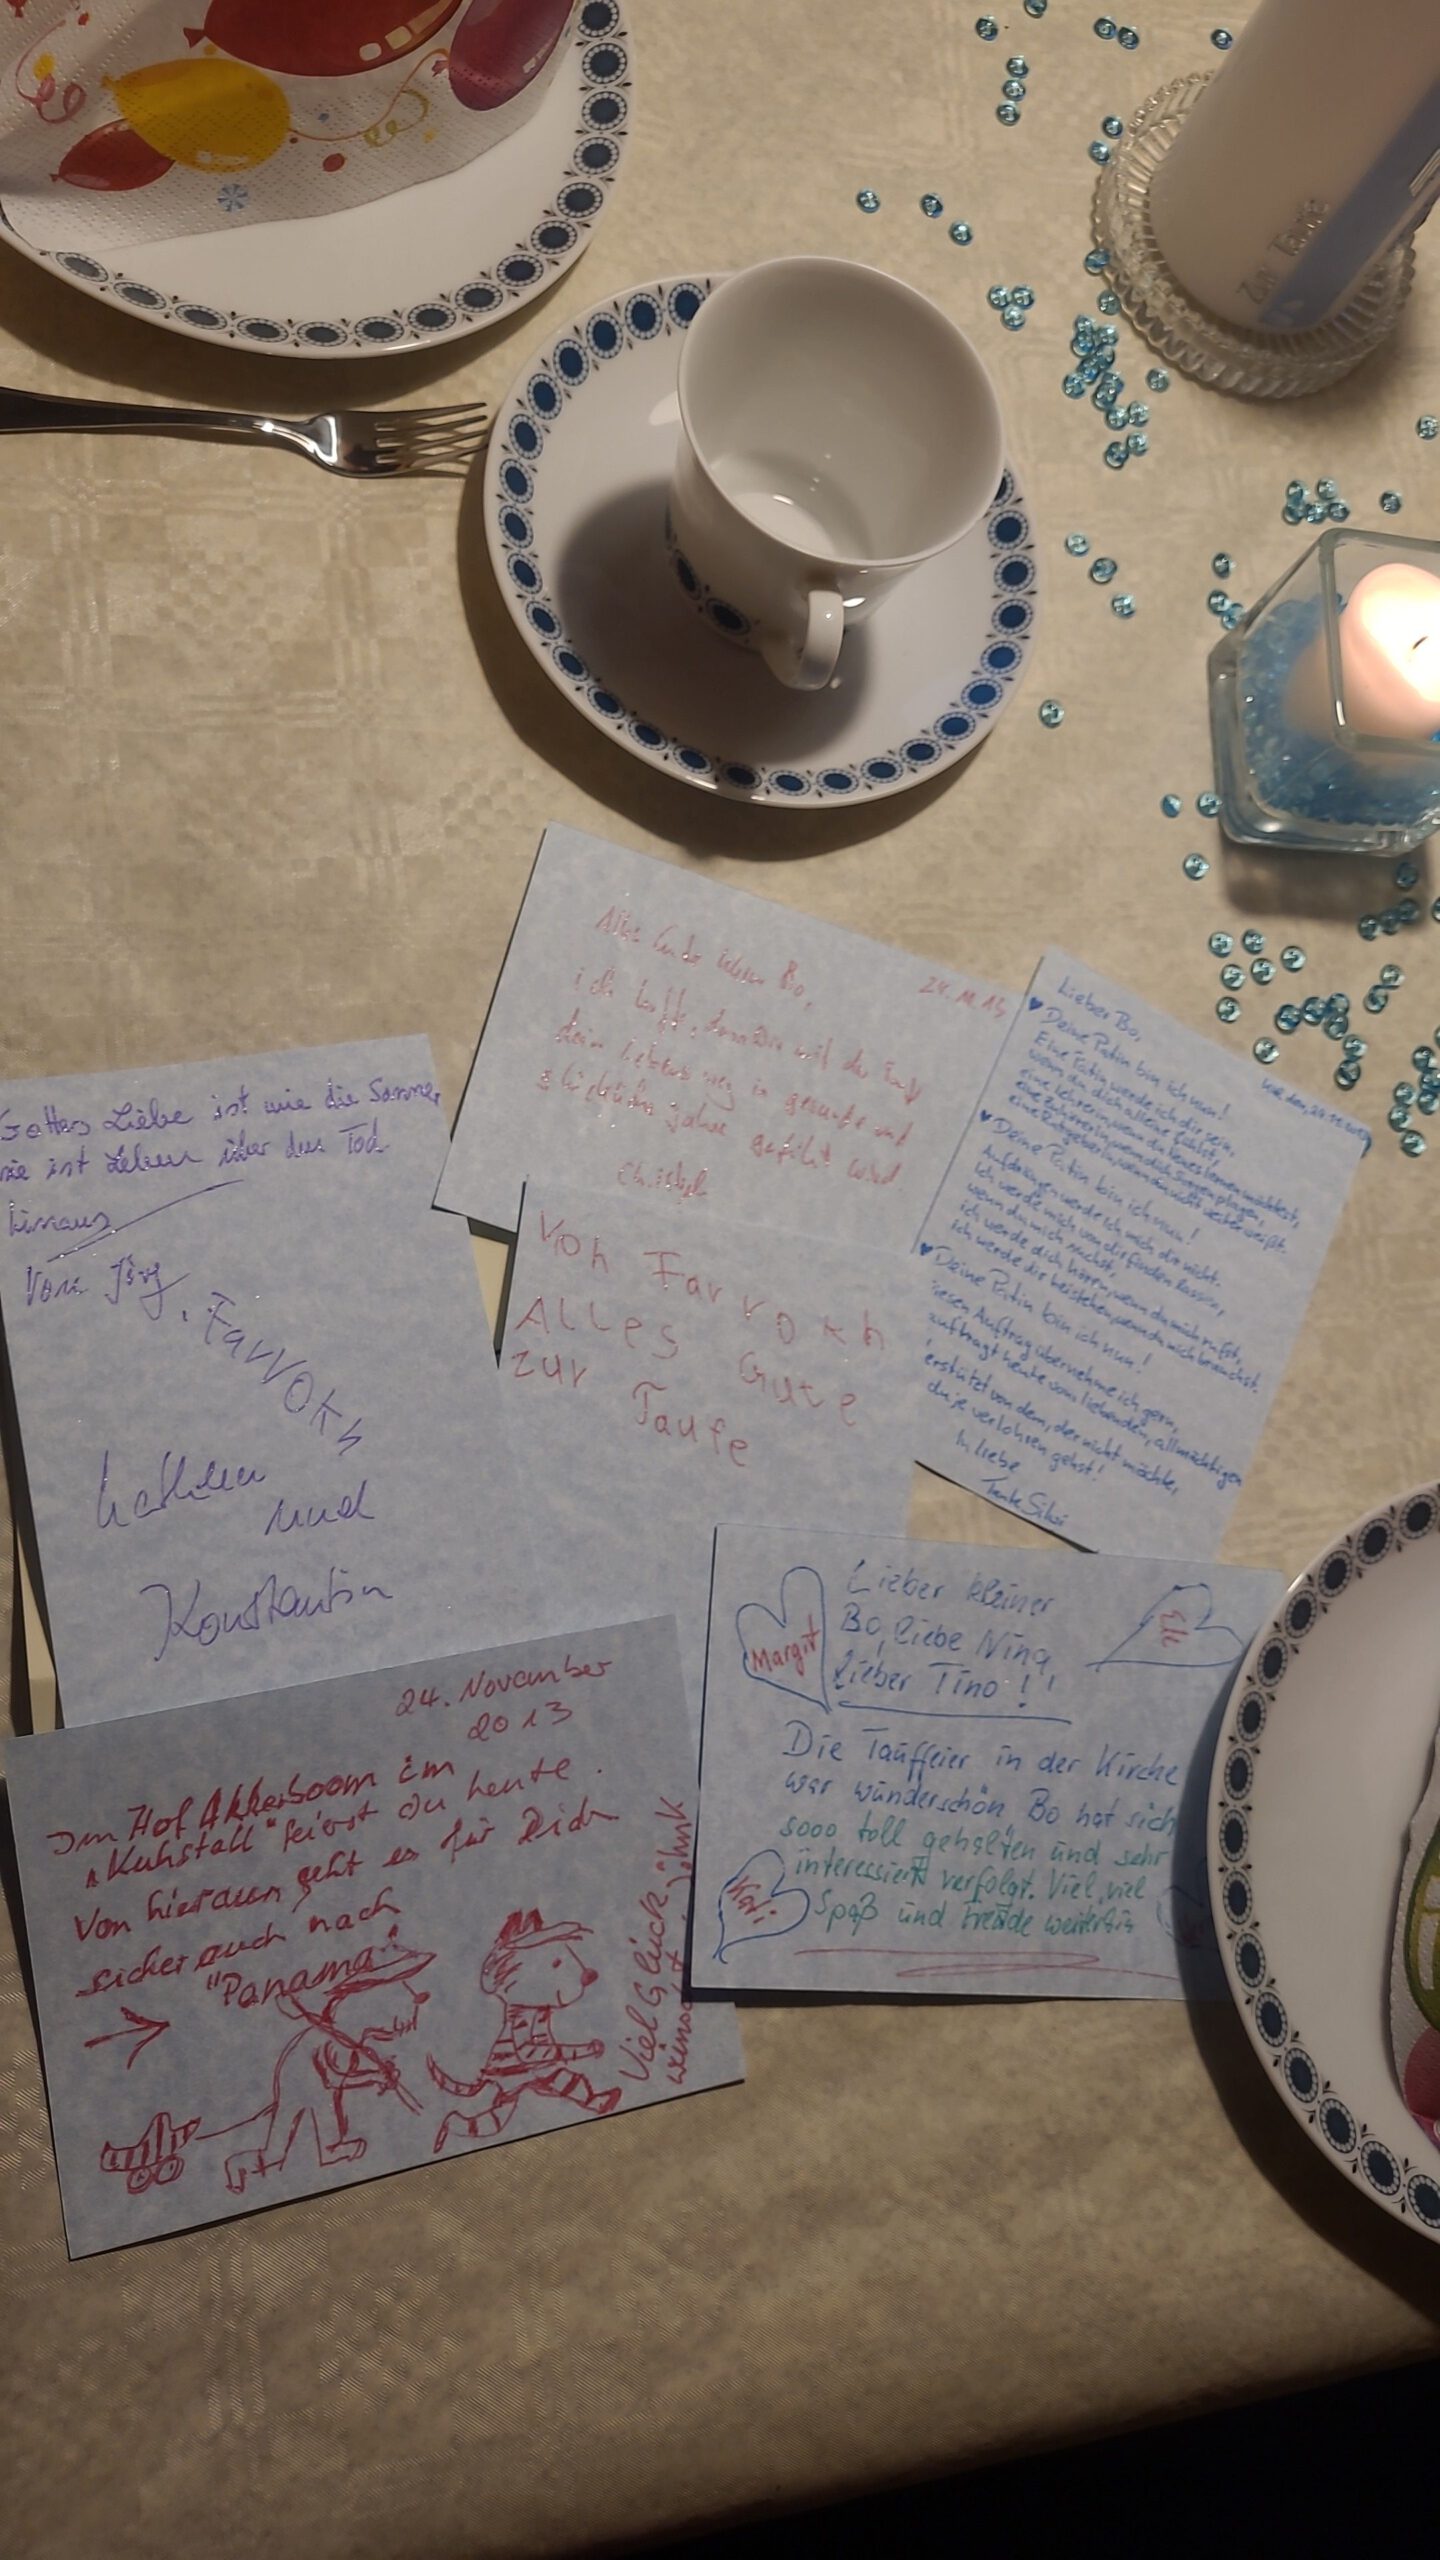 Zur Taufe
24.11.13
Alles Gute lieber Bo,
ich hoffe, dass mit der Taufe
dein Lebensweg in gesunde und
glückliche Jahre geführt wird
Christel
Lieber Bo,
den 24.11.2013
♥ Deine Patin bin ich nun!
Eine Patin werde ich dir sein,
wenn du dich alleine fühlst,
eine Lehrerin, wenn du neues lernen möchtest,
eine Zuhörerin, wenn dich Sorgen plagen,
eine Ratgeberin, wenn du nicht weiter weißt.
♥ Deine Patin bin ich nun!
Aufdrängen werde ich mich dir nicht.
Ich werde mich von dir finden lassen,
wenn du mich suchst,
ich werde dich hören, wenn du mich rufst,
ich werde dir beistehen, wenn du mich brauchst.
♥ Deine Patin bin ich nun!
diesen Auftrag übernehme ich gern,
auftragt heute vom liebenden, allmächtigen
erstützt von dem, der nicht möchte,
du je verlohren gehst!
In Liebe
Tante Silvi
Gottes Liebe ist wie die Sonne,
sie ist Leben über den Tod
hinaus
Von Jörg
, Farvokh
Kathleen
und
Konstantin
Von Farvokh
ALLes Gute
zur Taufe
Margit
Ele
Kai
Lieber kleiner
Bo, liebe Nina,
lieber Tino!
Die Tauffeier in der Kirche
war wunderschön Bo hat sich
sooo toll gehalten und sehr
interessiert verfolgt. Viel, viel
Spaß und Freude weiterhin
24. November
2013
Im Hof Akkerboom im
"Kuhstall" feierst du heute.
Von hieraus geht es für Dich
sicher auch nach
"Panama"
Viel Glück
wünscht